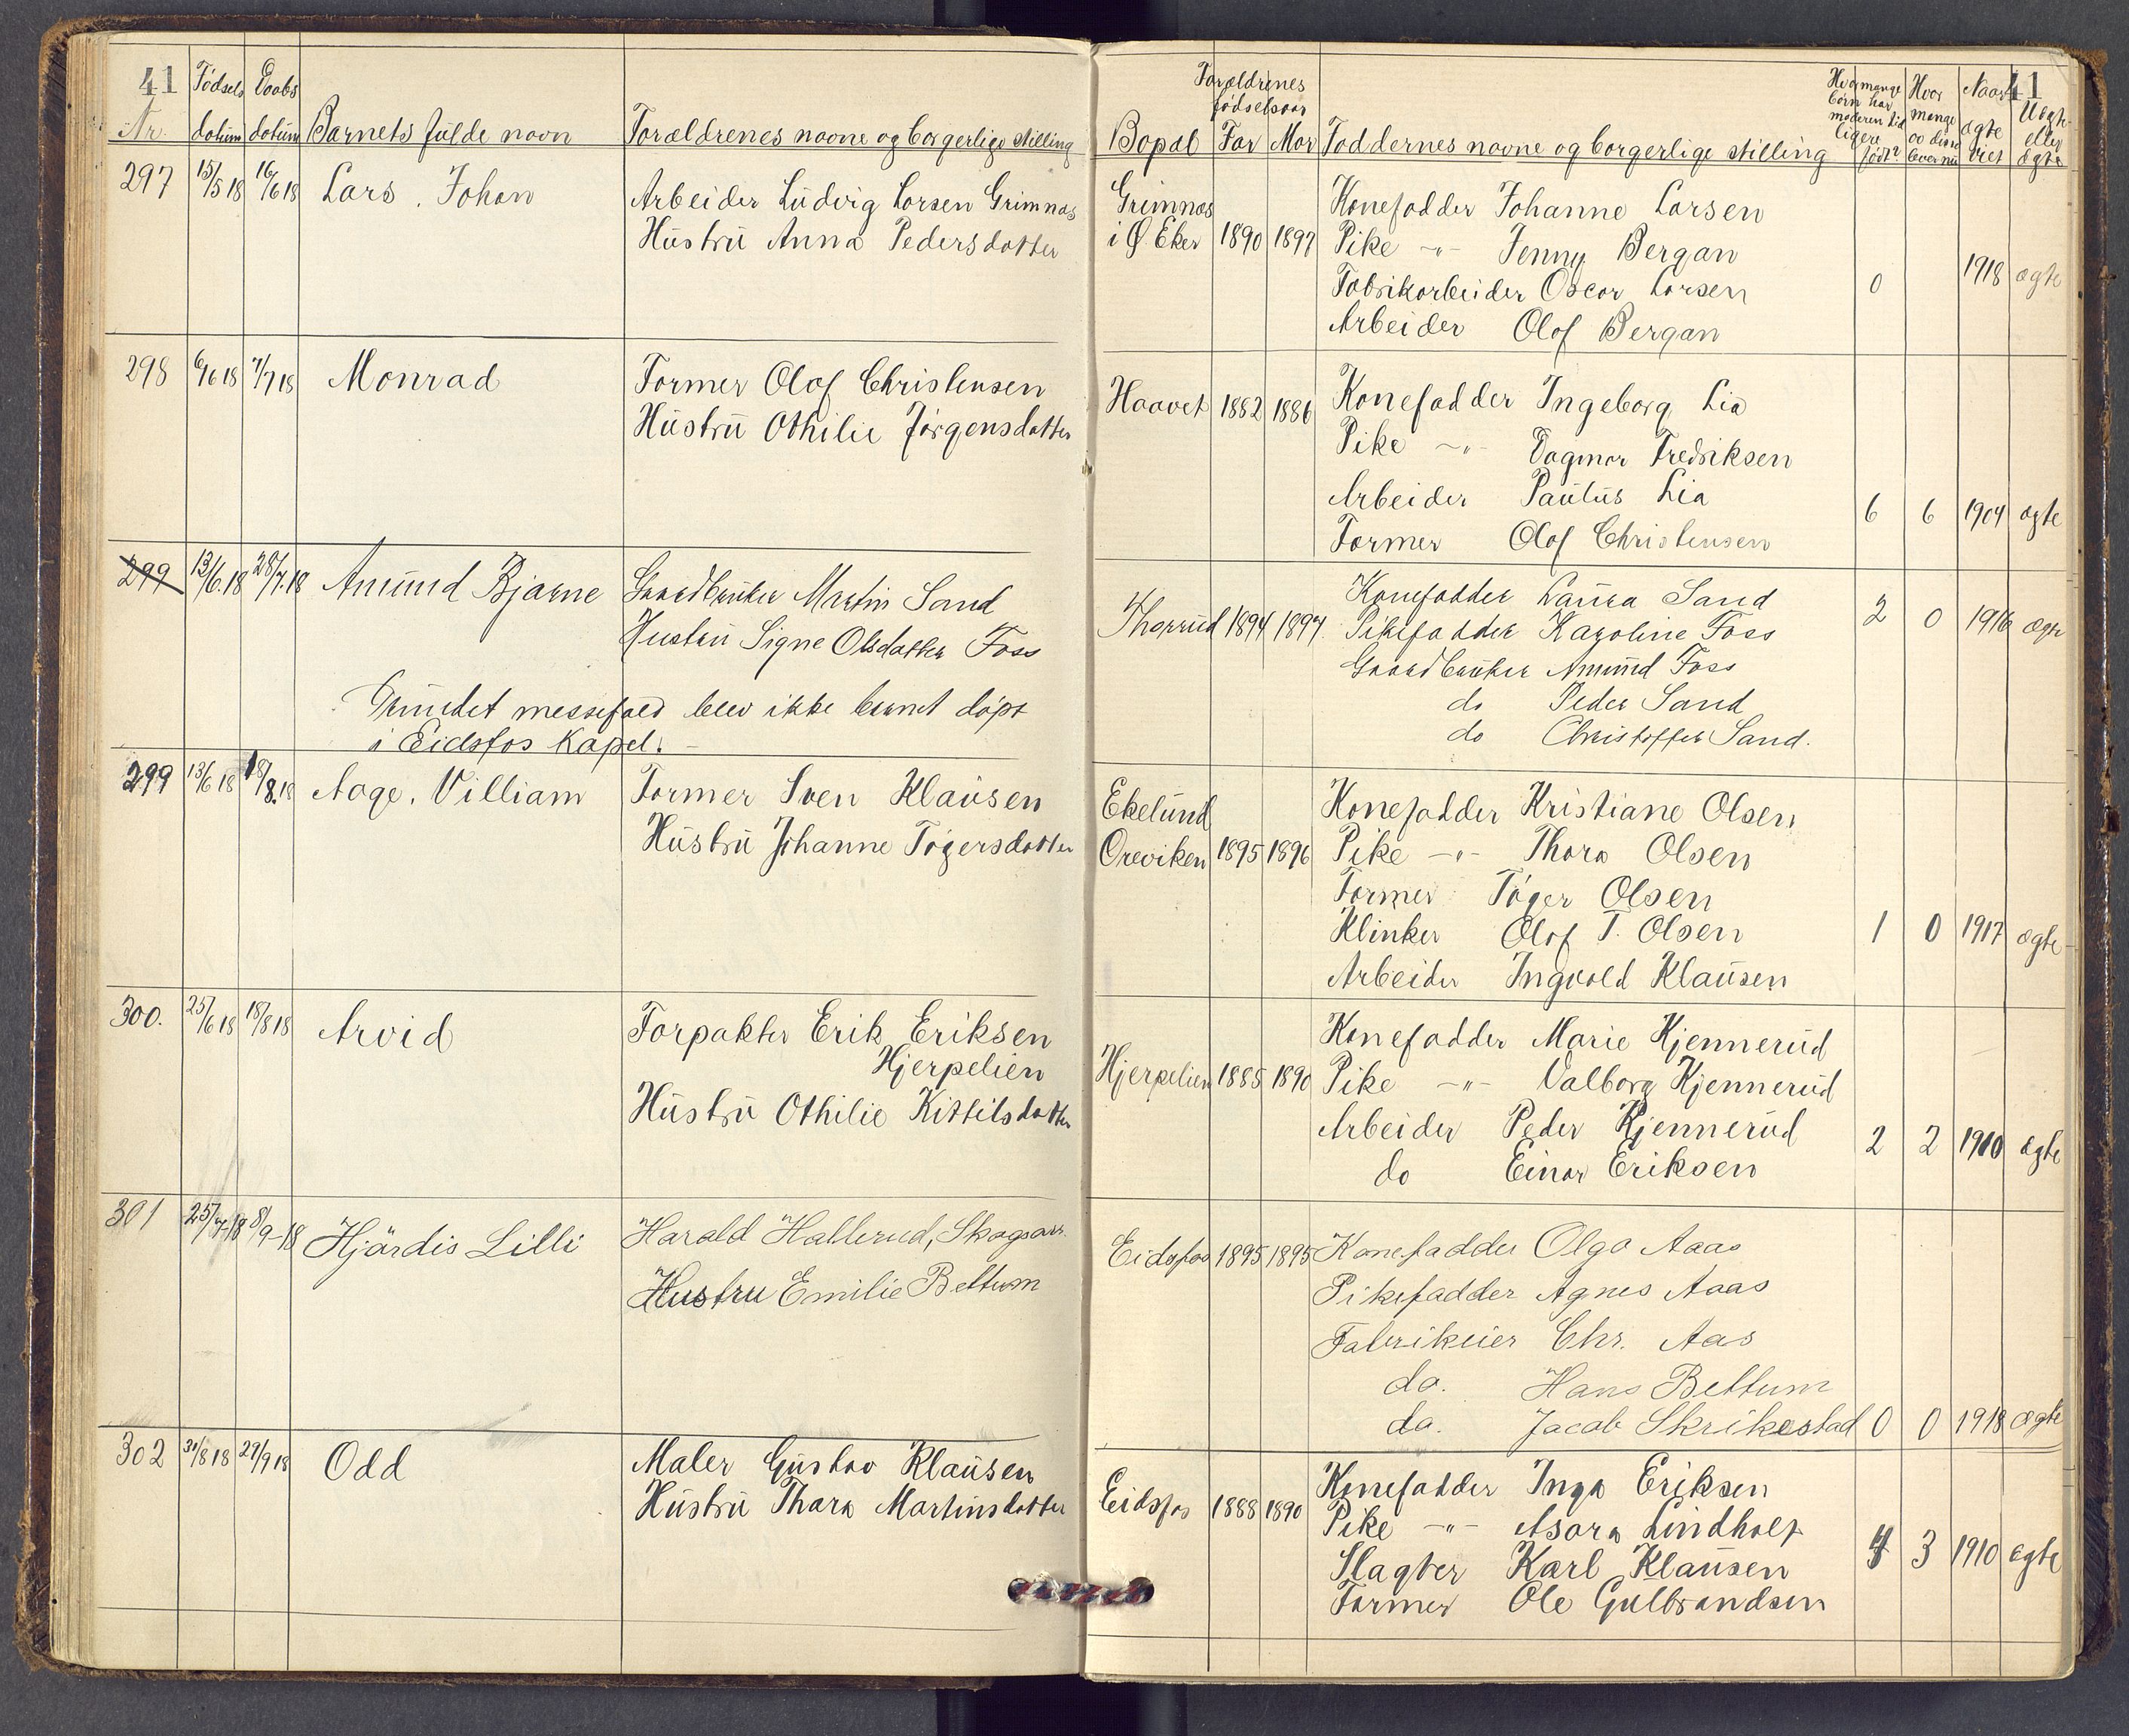 41
Nr.
Fødsels datum
Daabs datum
Barnets fulde navn
Forældrenes navne og borgerlige stilling
297 15/5 18 16/6 18 Lars. Johan
Arbeider Ludvig Larsen Grimnæs
Hustru Anna Pedersdatter
298 6/6 18 7/7 18 Monrad
Former Olaf Christensen
Hustru Othilie Jørgensdatter
299 13/6.18 28/7.18 Amund Bjarne
Gaardbruker Martin Sand
Hustru Signe Olsdatter Foss
Grundet messefald blev ikke barnet døpt
i Eidsfos Kapel. –
299 13/6 18 18/8.18 Aage. Villiam
Former Sven Klausen
Hustru Johanne Tøgersdatter
300. 25/6 18 18/8 18 Arvid
Forpakter Erik Eriksen
Hjerpelien
Hustru Othilie Kittilsdatter
301 25/7-18 8/9-18 Hjärdis Lilli
Harald Hallerud, Skogsarb.
Hustru Emilie Bettum
302 31/8 18 29/9 18 Odd
Maler Gustav Klausen
Hustru Thara Martinsdatter
41
Bopæl
Forældrenes fødselsaar
Far Mor
Faddernes navne og borgerlige stilling
Hvormange børn har moderen tidligere født?
Hvor mange av disse lever nu
Naar ægteviet
Uægte eller ægte
Grimnæs
i Ø. Eker 1890 1897
Konefadder Johanne Larsen
Pike –"– Jenny Bergan
Fabrikarbeider Oscar Larsen
Arbeider Olaf Bergan
0 1918 ægte
Haavet 1882 1886
Konefadder Ingeborg Lia
Pike –"– Dagmar Fredriksen
Arbeider Paulus Lia
Former Olaf Christensen
6 6 1904 ægte
Thorrud 1894 1897
Konefadder Laura Sand
Pikefadder Karoline Foss
Gaardbruker Amund Foss
do Peder Sand
do Christoffer Sand.
2 0 1916 ægte
Ekelund
Oreviken 1895 1896
Konefadder Kristiane Olsen
Pike –"– Thora Olsen
Former Tøger Olsen
Klinker Olaf T. Olsen
Arbeider Ingvald Klausen
1 0 1917 ægte
Hjerpelien 1885 1890
Konefadder Marie Kjennerud
Pike –"– Valborg Kjennerud
Arbeider Peder Kjennerud
do Einar Eriksen
2 2 1910 ægte
Eidsfos 1895 1895
Konefadder Olga Aaas
Pikefadder Agnes Aaas
Fabrikeier Chr. Aas
do. Hans Bettum
do. Jacob Skrikestad
0 0 1918 ægte
Eidsfos 1888 1890
Konefadder Inga Eriksen
Pike –"– Asora Lindholf
Slagter Karl Klausen
Former Ole Gulbrandsen
4 3 1910 ægte